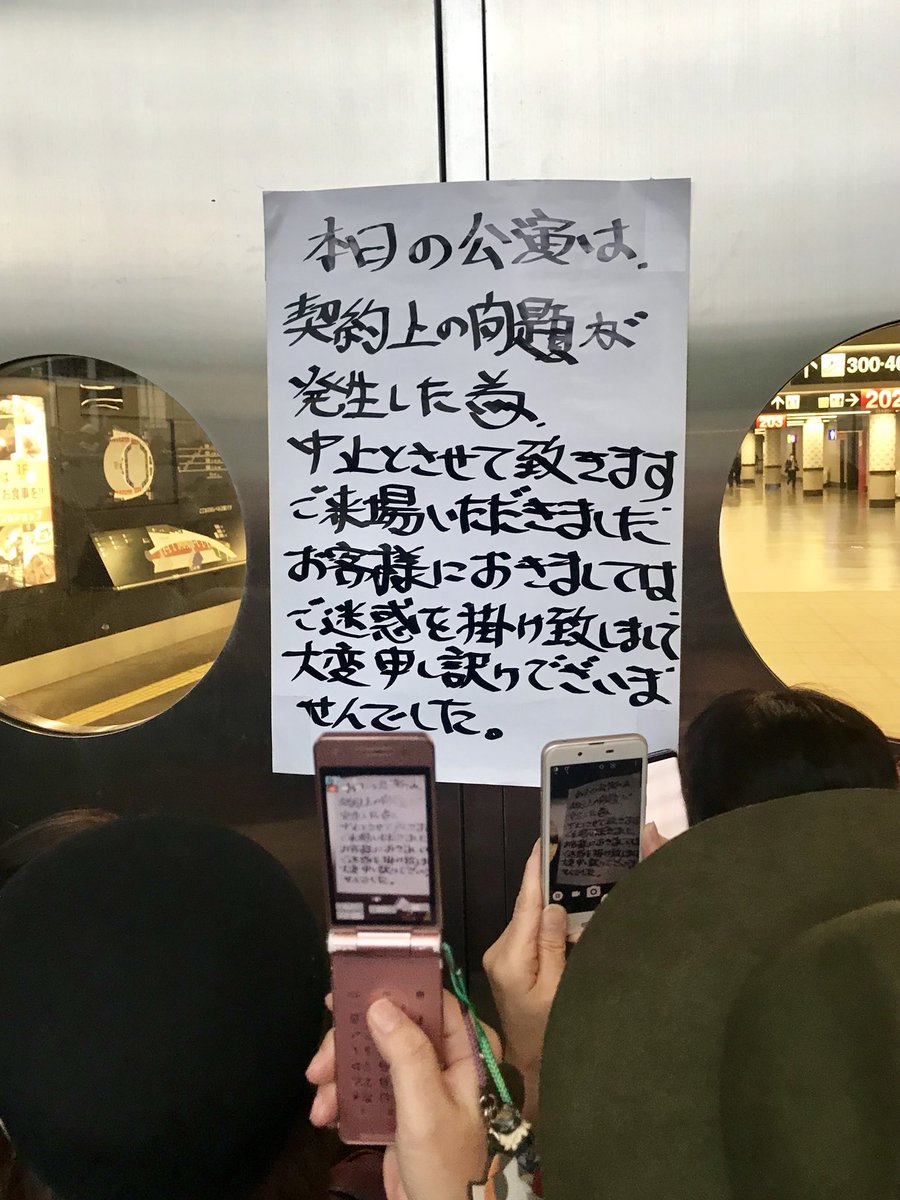 本日の公演は、
契約上の問題が
発生した為、
中止とさせて致きます
ご来場いただきました
お客様におきましては、
ご迷惑を掛け致しまして
大変申し訳けでございま
せんでした。
お食事を!!
300-40
202
203